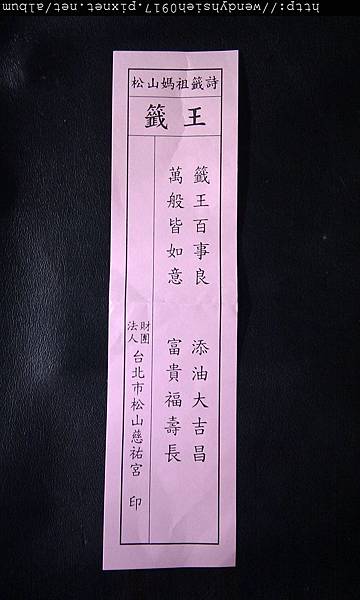 http://wendyhsieh0917.pixnet.net/album
松山媽祖籤詩
籤王
籤王百事良 添油大吉昌
萬般皆如意 富貴福壽長
財團法人台北市松山慈祐宮 印